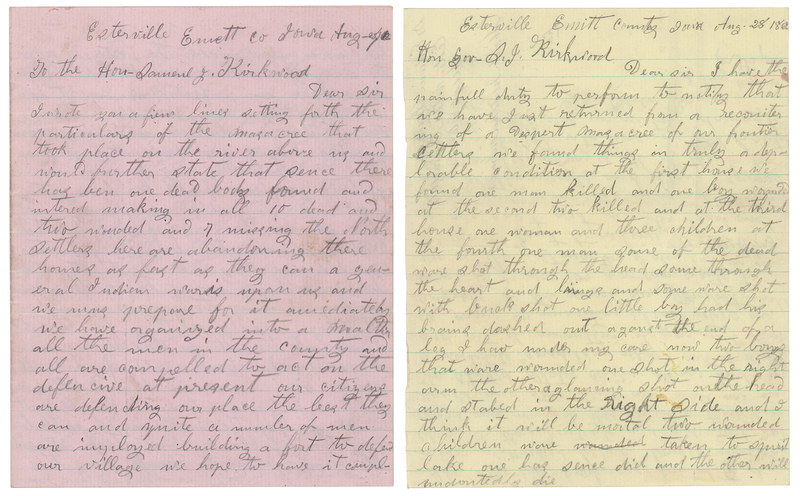 Esterville Emett Co Iowa Aug
To the Hon Samuel J. Kirkwood
Dear Sir
I wrote you a few lines setting forth the
particulars of the masacree that
took place on the river above us and
would further state that sence there
has ben one dead body found and
intered making in all 10 dead and
two wouded and 7 missing the North
settlers here are abandoning there
homes as fast as they can a gen-
eral Indian war is upon us and
we mus prepare for it amediately
we have organized into a
all the men in the county and
all are compelled to act on the
deffencive at present our citizens
are defending our place the best they
can and quite a number of men
are imployed building a fort to defend
our village we hope to have it compl-
Esterville Emitt County Iowa Aug. 28 1862
Hon Gov- S. J. Kirkwood
Dear sir I have the
painfull duty to perform to notify that
we have Just returned from a reconiter-
ing of a masacree of our fronter
settlers we found things in truly a dep-
lorable condition at the first house we
found one man killed and one boy wouded
at the second two killed and at the third
house one woman and three children at
the fourth one man some of the dead
ware shot through the head some through
the heart and lungs and some ware shot
with buck shot one little boy had his
brains dashed out against the end of a
log I have under my care now two boys
that ware wounded one shot in the right
arm the other a glancing shot on the head
and stabed in the Right Side and I
think it will be mortal two wounded
children were taken to spirit
lake one has sence died and the other will
undoutedly die